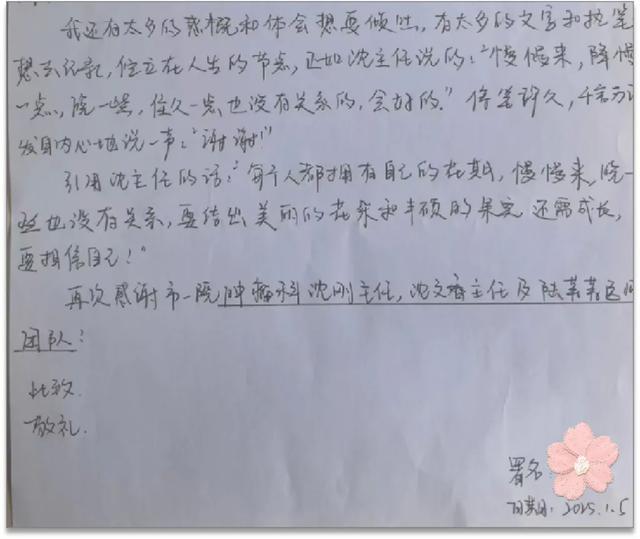 我还有太多的感慨和体会想要倾吐，有太多的文字和执笔
想去记录，伫立在人生的节点，正如沈主任说的："慢慢来，降慢
一点，晚一些，住久一点也没有关系的，会好的。"停笔许久，千言万语
发自内心地说一声："谢谢！"
引用沈主任的话："每个人都拥有自己的花期，慢慢来，晚一
些也没有关系，要结出美丽的花朵和丰硕的果实还需成长，
要相信自己！"
再次感谢市一院肿瘤科沈刚主任，沈文香主任及陆苹苹医
团队！
此致
敬礼.
署名
日期：2025.1.5